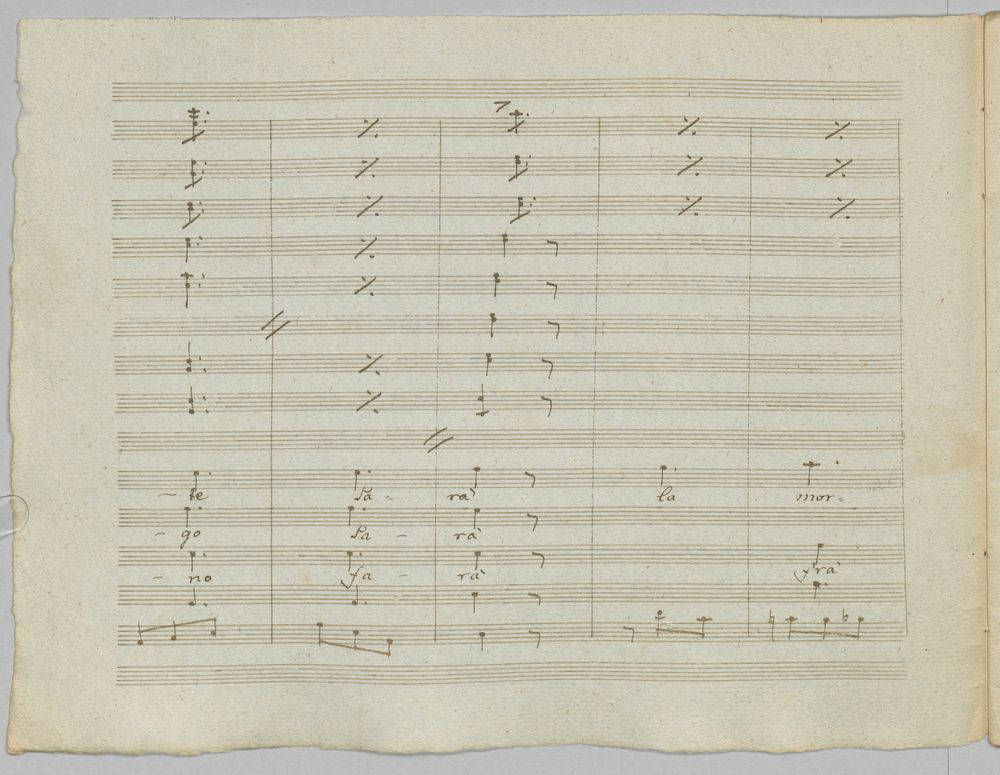 - te sa - rà la mor-
- go sa - rà
- no sa - rà frà